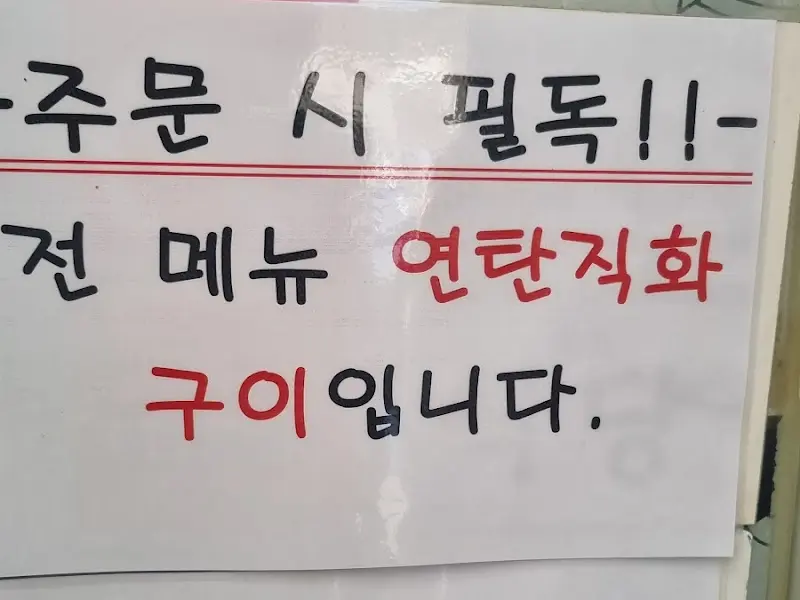 -주문 시 필독!!-
전 메뉴 연탄직화
구이입니다.